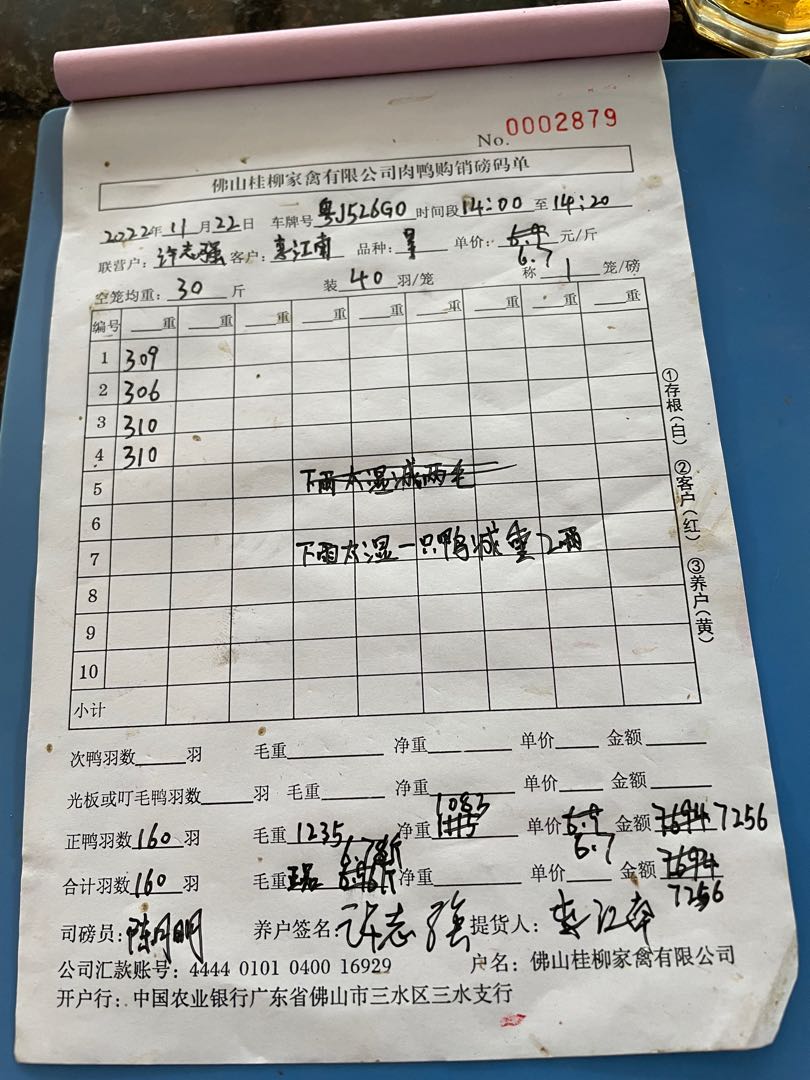 No. 0002879
佛山桂柳家禽有限公司肉鸭购销磅码单
2022年 11月22日 车牌号 粤J526G0 时间段 14:00 至 14:20
联营户: 许志强 客户: 李江南 品种: 单价: 6.9 元/斤
6.7
空笼均重: 30 斤 装 40 羽/笼 称 1 笼/磅
编号 重 重 重 重 重 重 重 重
1 309
2 306
3 310
4 310
5 下雨太湿减两毛
6
7 下雨太湿一只鸭减重2两
8
9
10
小计
①存根(白) ②客户(红) ③养户(黄)
次鸭羽数 羽 毛重 净重 单价 金额
光板或叮毛鸭羽数 羽 毛重 净重 单价 金额
1083
正鸭羽数 160 羽 毛重 1235 净重 1115 单价 6.9 金额 7694 7256
6.78斤 6.7
合计羽数 160 羽 毛重 净重 单价 金额 7694
7256
司磅员: 陈月明 养户签名: 许志强 提货人: 李江南
公司汇款账号: 4444 0101 0400 16929 户名: 佛山桂柳家禽有限公司
开户行: 中国农业银行广东省佛山市三水区三水支行